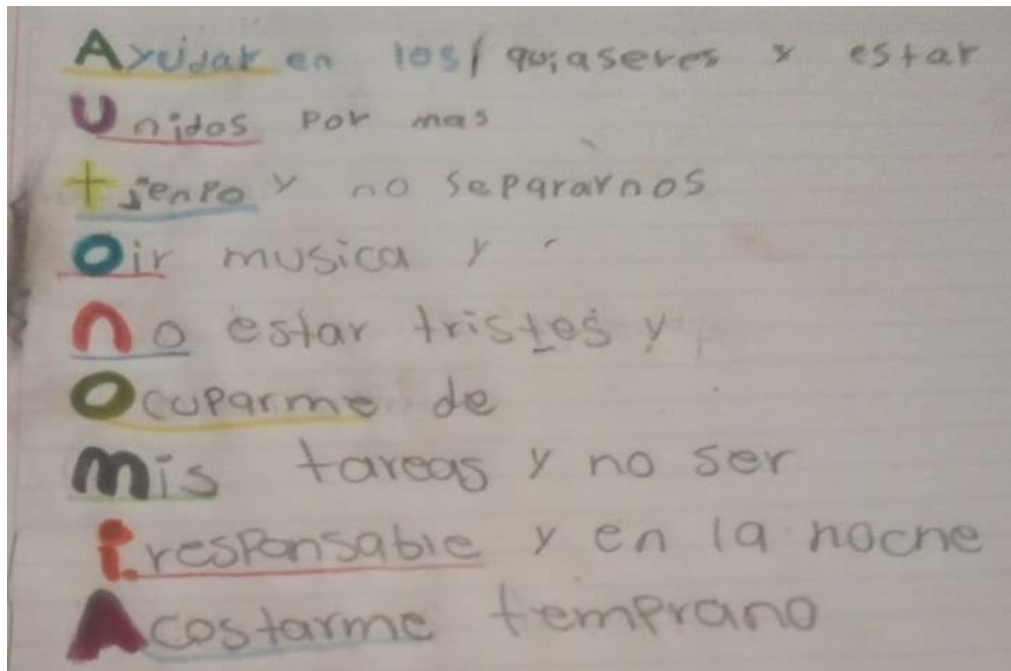 Ayudar en los/quiaseres y estar
Unidos por mas
tienpo y no separarnos
Oir musica y
no estar tristes y
Ocuparme de
mis tareas y no ser
irresponsable y en la noche
Acostarme temprano